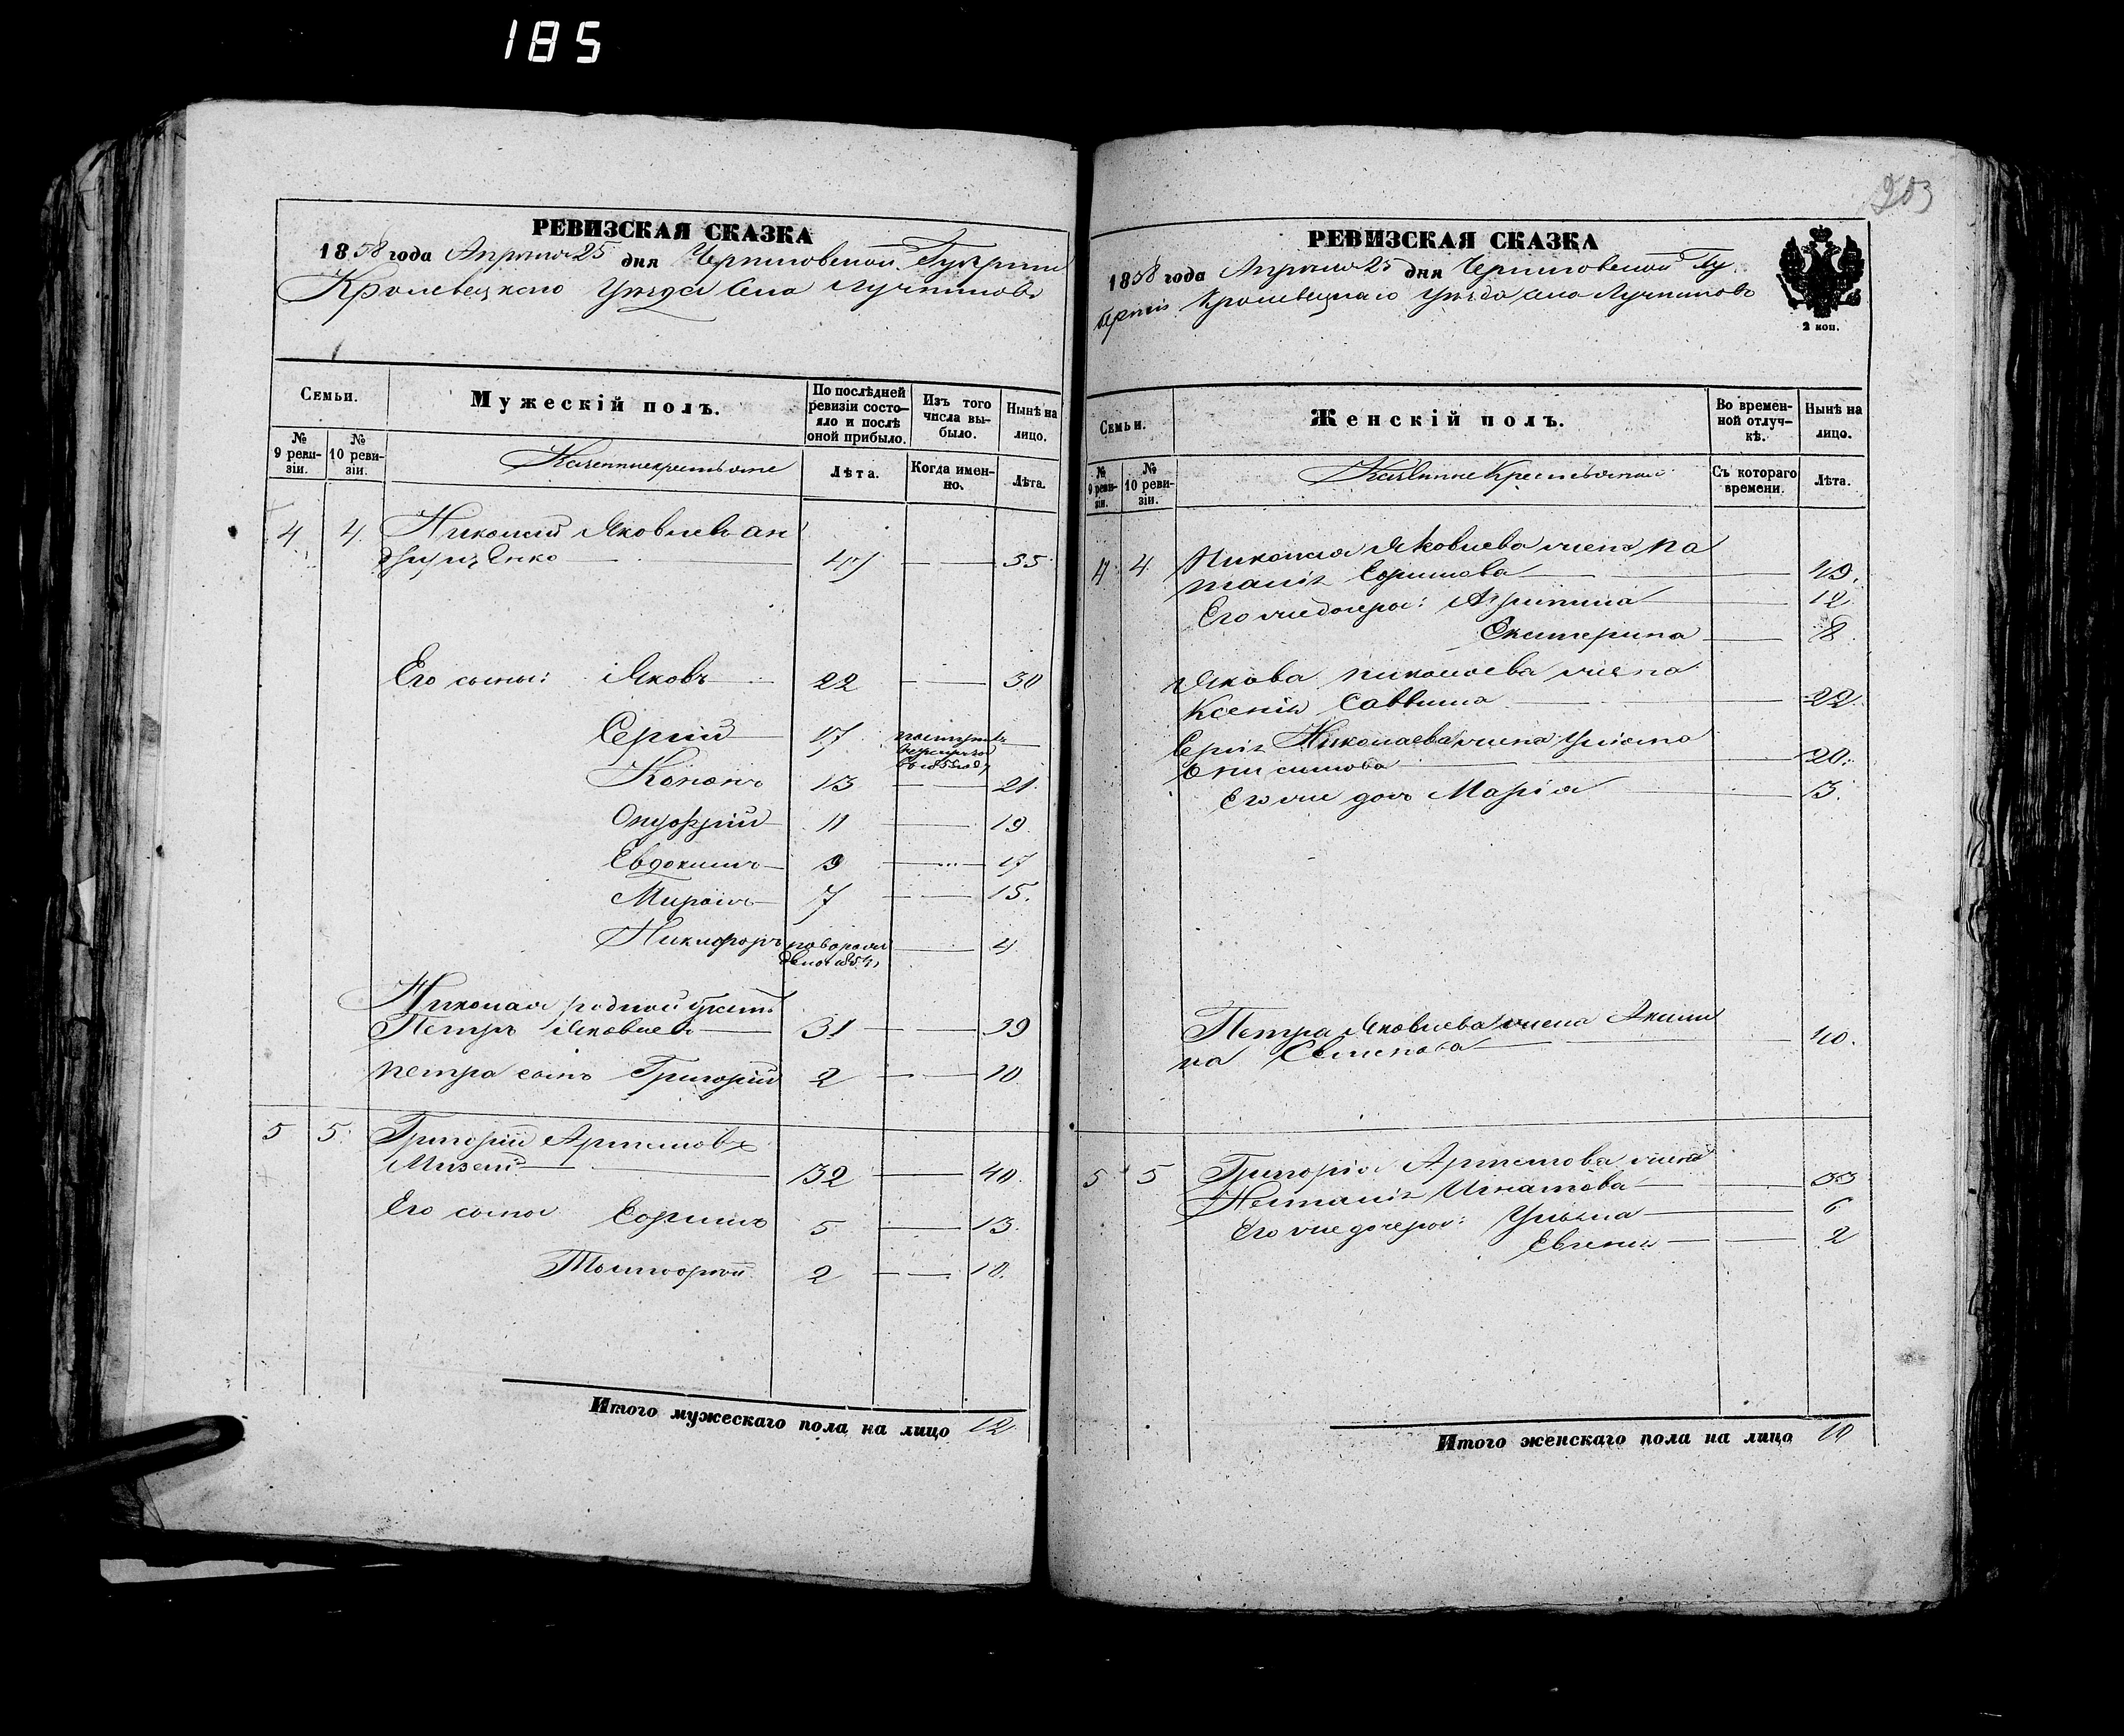 185
РЕВИЗСКАЯ СКАЗКА
1858 года Апреля 25 дня Черниговской Губернии
Кролевецкаго уезда Села Лучниковъ
Семьи.
Мужескій полъ.
По послѣдней ревизіи состояло и послѣ оной прибыло.
Изъ того числа выбыло.
Нынѣ на лицо.
№ 9 ревизіи.
№ 10 ревизіи.
Казенные крестьяне
Лѣта.
Когда именно.
Лѣта.
4 4 Николай Яковлевъ Ан
47 55
Его сыны: Яковъ 22 30
Сергій 17
Кононъ 13 21
Онуфрій 11 19
Евдокимъ 9 17
Миронъ 7 15
Никифоръ 4
Николая родной братъ
Петръ Яковлевъ 31 39
Петра сынъ Григорій 2 10
5 5 Григорій Артемовъ
32 40
Его сыны Ефимъ 5 13
2 10
Итого мужескаго пола на лицо 12
203
РЕВИЗСКАЯ СКАЗКА
1858 года Апреля 25 дня Черниговской Гу
берніи Кролевецкаго уезда Села Лучниковъ
2 коп.
Семьи.
Женскій полъ.
Во временной отлучкѣ.
Нынѣ на лицо.
№ 9 ревизіи.
№ 10 ревизіи.
Казенные Крестьянки
Съ котораго времени.
Лѣта.
4 4 Николая Яковлева жена На
талія Ефимова 49
Его же дочери: Агрипина 12
Екатерина 8
Якова Николаева жена
Ксенія Саввина 22
Сергія Николаева жена Уліяна
Онисимова 20
Его же дочь Марія 3
Петра Яковлева жена Акили
на 40
5 5 Григорія Артемова жена
Наталія Игнатова 33
Его же дочери: Ульяна 6
Евгенія 2
Итого женскаго пола на лицо 10